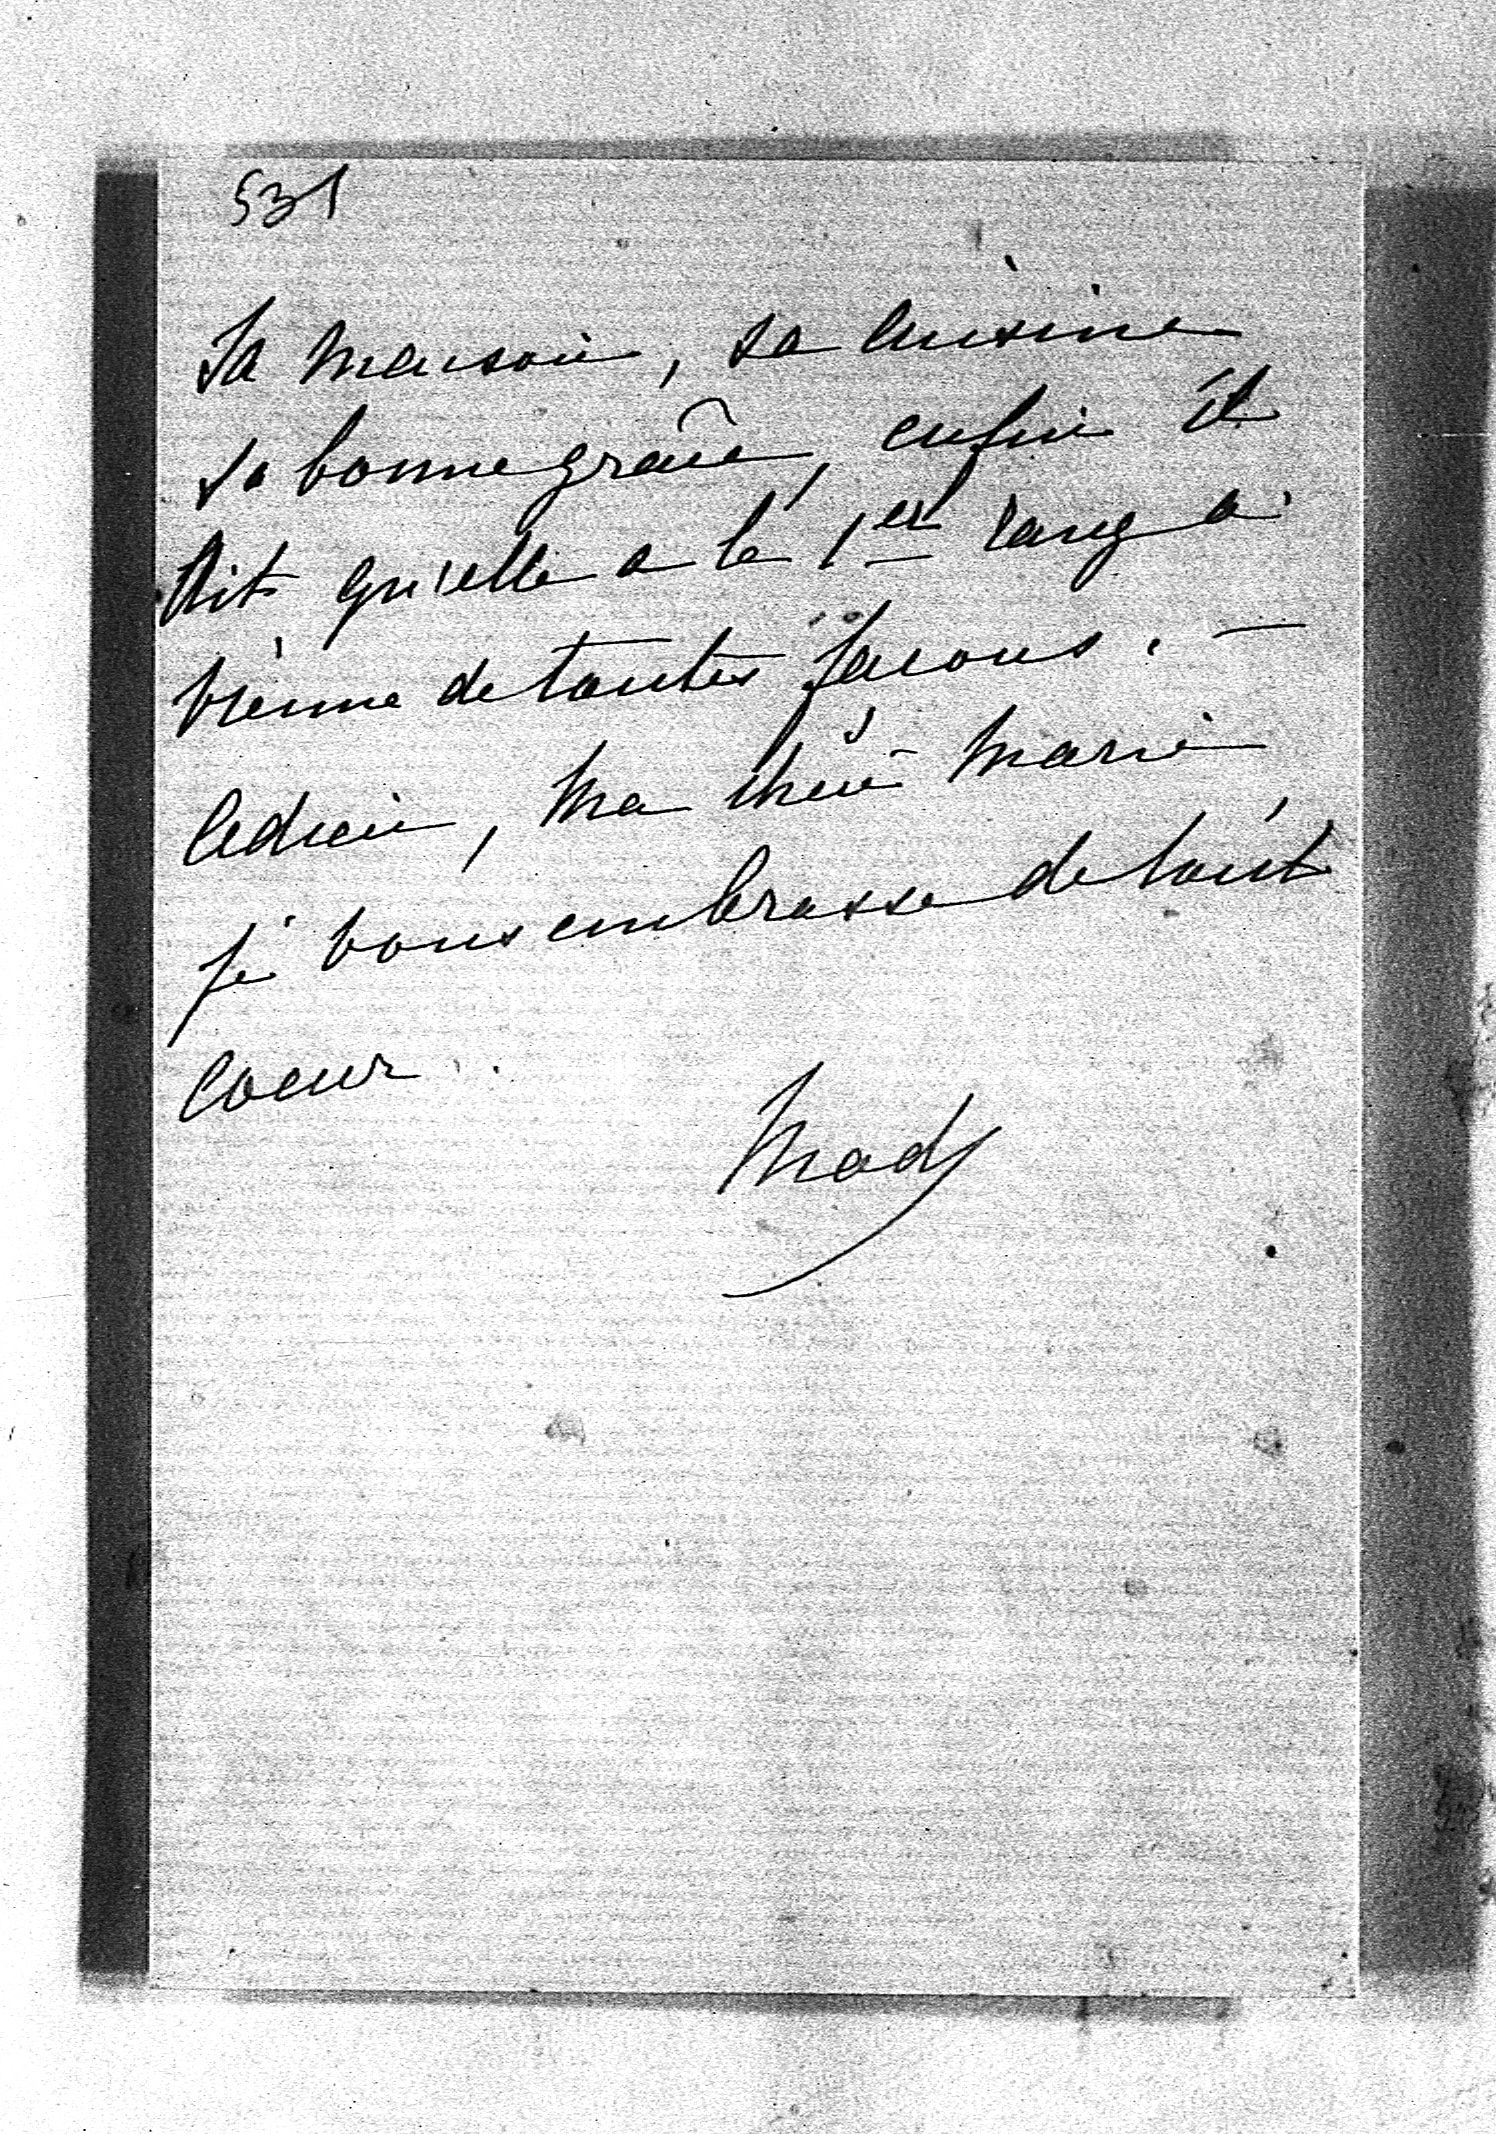 531
sa maison, sa cuisine
sa bonne grâce, enfin il
dit qu'elle a le 1er rang à
Vienne de toutes façons. —
Adieu, ma chère Marie
je vous embrasse de tout
coeur.
Mady